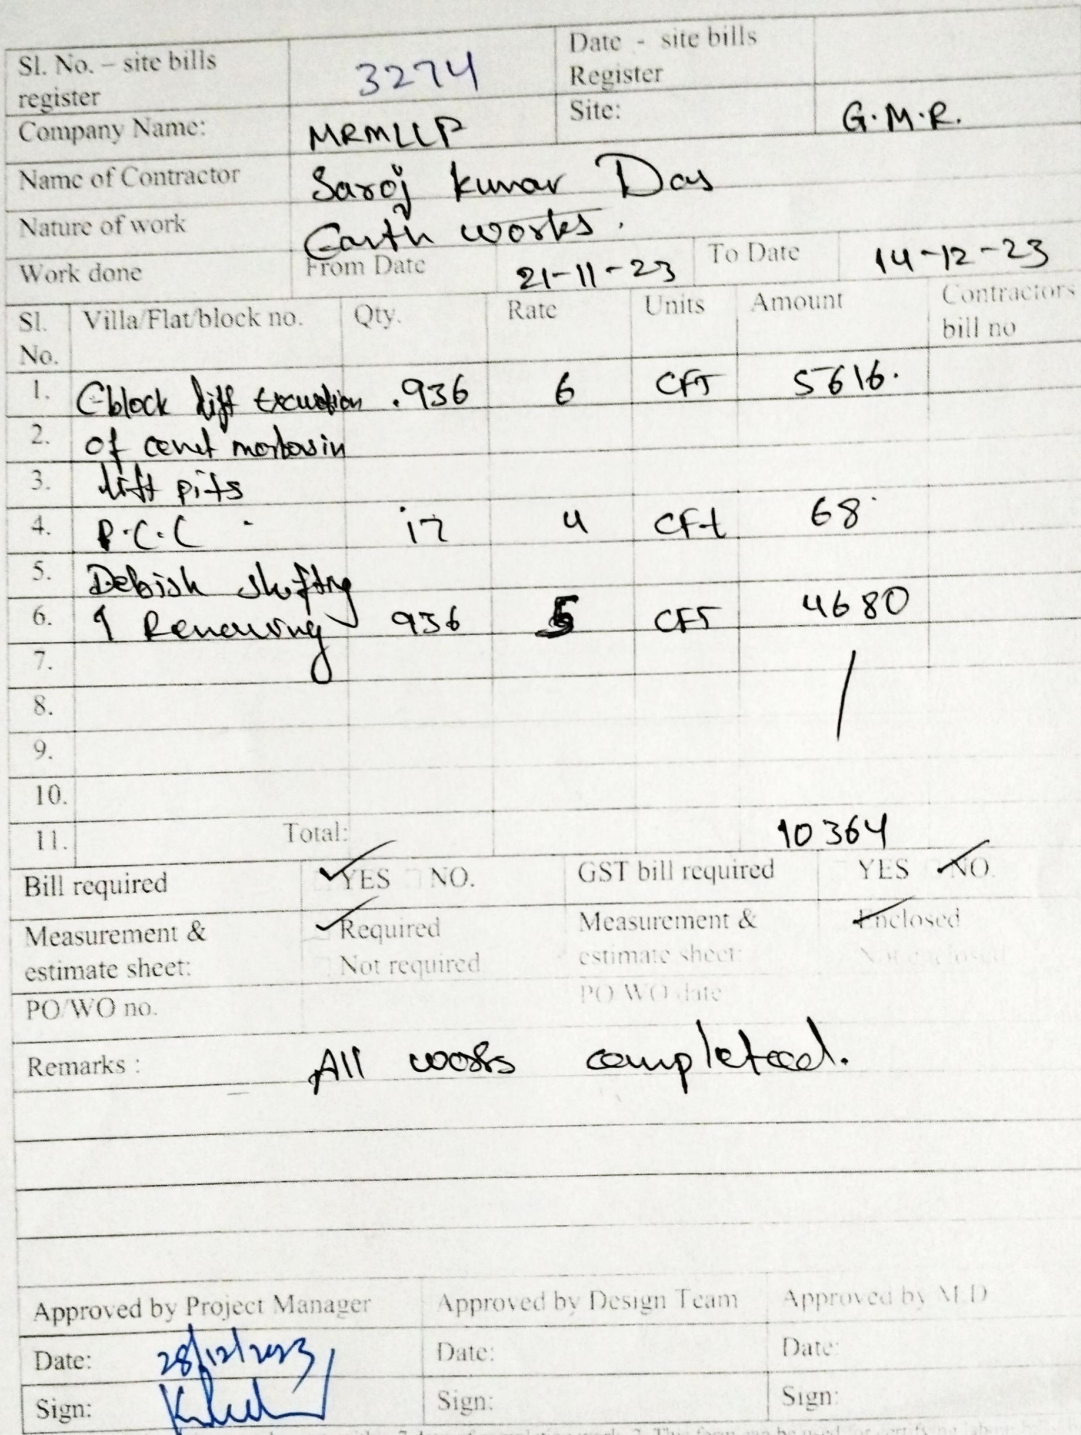 Sl. No. – site bills register 3274 Date - site bills Register
Company Name: MRMLLP Site: G.M.R.
Name of Contractor Saroj kumar Das
Nature of work Earth works.
Work done From Date 21-11-23 To Date 14-12-23
Sl. No. Villa/Flat/block no. Qty. Rate Units Amount Contractors bill no
1. C-block lift .936 6 CFT 5616.
2. of
3. lift pits
4. P.C.C 17 4 CFt 68
5. Debish shifting
6. 936 5 CFT 4680
7.
8.
9.
10.
11. Total: 10364
Bill required YES NO. GST bill required YES NO.
Measurement & estimate sheet: Required Not required Measurement & estimate sheet: Enclosed Not enclosed
PO/WO no. PO/WO date
Remarks : All works completed.
Approved by Project Manager Approved by Design Team Approved by M.D
Date: 28/12/2023 Date: Date:
Sign: Sign: Sign: